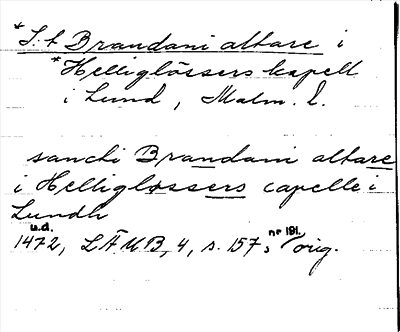 *S:t Brandani altare i
*Helliglössers kapell
i Lund, Malm. l.
sancti Brandani altare
i Helliglossers capelle i
Lundh
u.d.
1472, LÄUB, 4, s. 157, nr 191. orig.